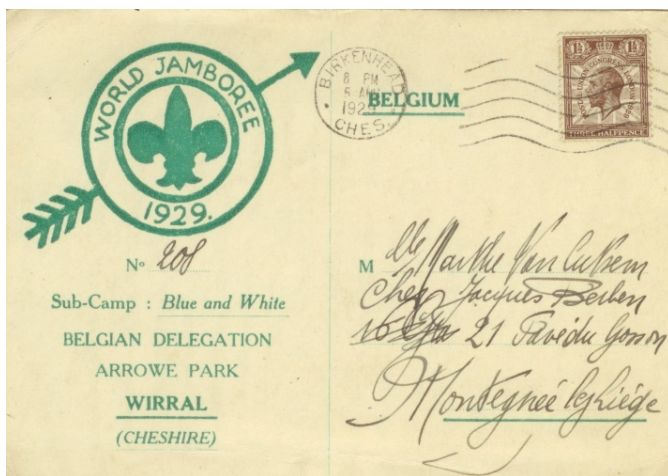 WORLD JAMBOREE
1929.
Nº 208
Sub-Camp : Blue and White
BELGIAN DELEGATION
ARROWE PARK
WIRRAL
(CHESHIRE)
BIRKENHEAD
8 PM
5
1929
CHES.
BELGIUM
1½ 1½
POSTAL UNION CONGRESS LONDON 1929
THREE HALFPENCE
M lle Marthe Van
Chez Jacques Berben
16 21 Pavé du Gosson
Montegnée lez Liège